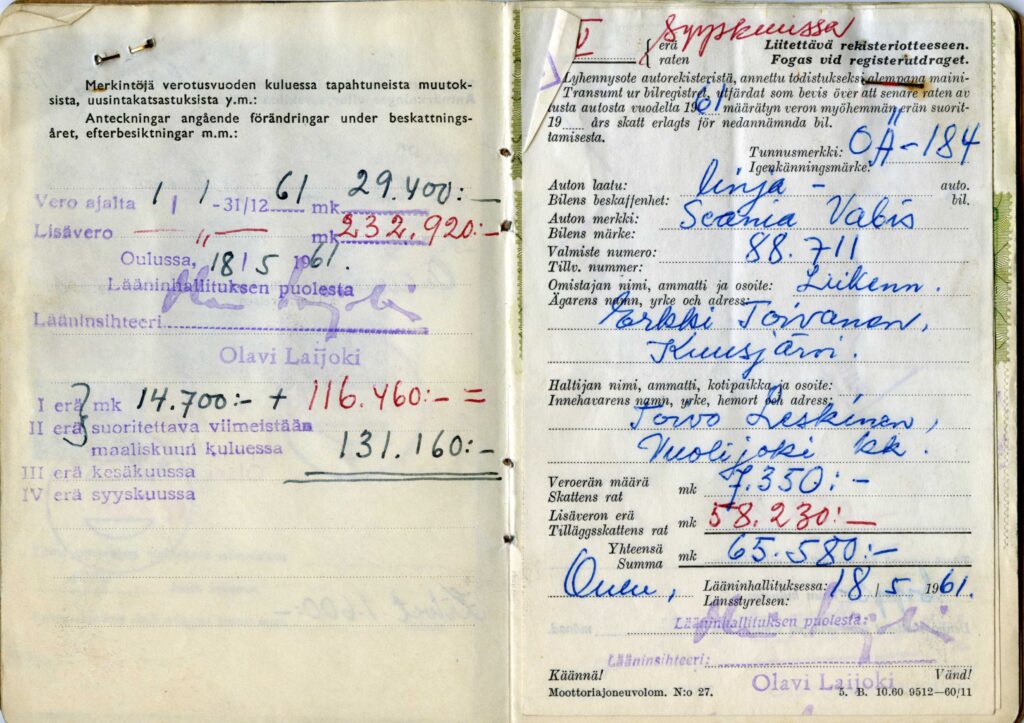 Merkintöjä verotusvuoden kuluessa tapahtuneista muutok-
sista, uusintakatsastuksista y.m.:
Anteckningar angående förändringar under beskattnings-
året, efterbesiktningar m.m.:
Vero ajalta 1/1 -31/12 61 mk 29.400:-
Lisävero — " — mk 232.920:-
Oulussa, 18/5 1961.
Lääninhallituksen puolesta
Lääninsihteeri
Olavi Laijoki
I erä } mk 14.700:- + 116.460:- =
II erä } suoritettava viimeistään
maaliskuun kuluessa 131.160:-
III erä kesäkuussa
IV erä syyskuussa
V { erä Syyskuussa
raten
Liitettävä rekisteriotteeseen.
Fogas vid registerutdraget.
Lyhennysote autorekisteristä, annettu todistukseksi alempana maini-
Transumt ur bilregistret, utfärdat som bevis över att senare raten av
tusta autosta vuodella 1961 määrätyn veron myöhemmän erän suorit-
19 års skatt erlagts för nedannämnda bil.
tamisesta.
Tunnusmerkki: OÄ-184
Igenkänningsmärke:
Auton laatu: linja - auto.
Bilens beskaffenhet: bil.
Auton merkki: Scania Vabis
Bilens märke:
Valmiste numero: 88.711
Tillv. nummer:
Omistajan nimi, ammatti ja osoite: Liikenn.
Ägarens namn, yrke och adress:
Erkki Toivanen,
Kuusjärvi.
Haltijan nimi, ammatti, kotipaikka ja osoite:
Innehavarens namn, yrke, hemort och adress:
Toivo Leskinen,
Vuolijoki kk.
Veroerän määrä mk 7.350:-
Skattens rat
Lisäveron erä mk 58.230:-
Tilläggsskattens rat
Yhteensä mk 65.580:-
Summa
Oulu, Lääninhallituksessa: 18/5 1961.
Länsstyrelsen:
Lääninhallituksen puolesta:
Lääninsihteeri:
Olavi Laijoki
Käännä! Vänd!
Moottoriajoneuvolom. N:o 27. 5. B. 10.60 9512-60/11